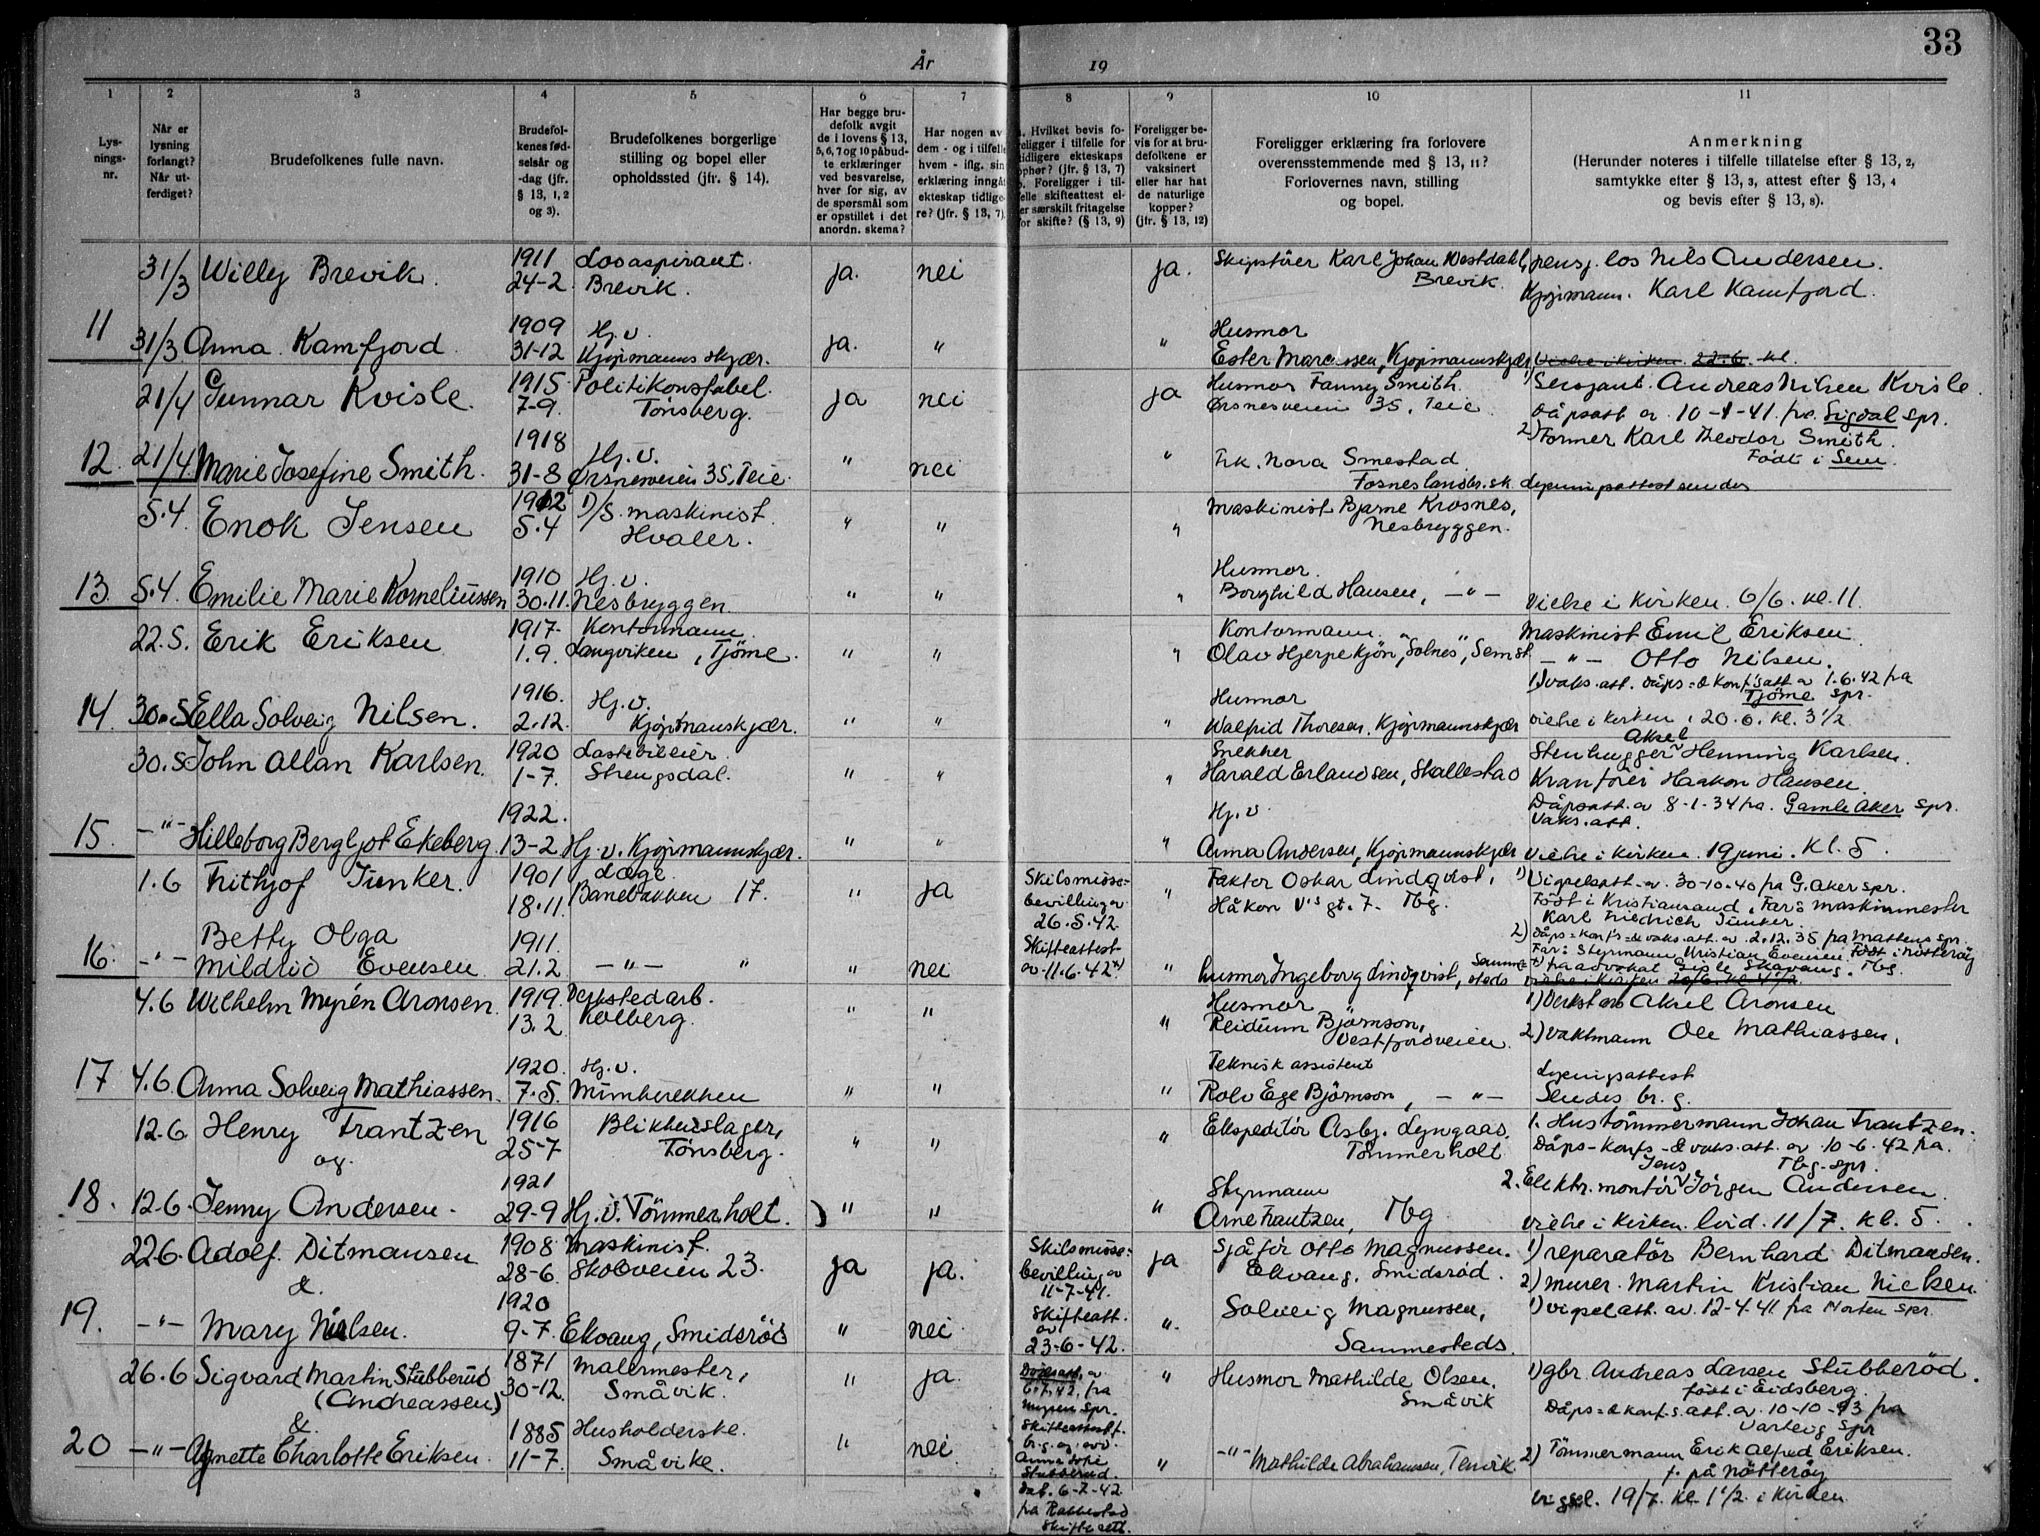 33
År 19
1 2 3 4 5 6 7 8 9 10 11
Lys-
nings-
nr.
Når er
lysning
forlangt?
Når ut-
ferdiget?
Brudefolkenes fulle navn.
Brudefol-
kenes fød-
selsår og
-dag (jfr.
§ 13, 1, 2
og 3).
Brudefolkenes borgerlige
stilling og bopel eller
opholdssted (jfr. § 14).
Har begge bru-
defolk avgit
de i lovens § 13,
5, 6, 7 og 10 påbud-
te erklæringer
ved besvarelse,
hver for sig, av
de spørsmål som
er opstillet i det
anordn. skema?
Har nogen av
dem - og i tilfelle
hvem - iflg. sin
erklæring inngåt
ekteskap tidlige-
re? (jfr. § 13, 7)
. Hvilket bevis fo-
religger i tilfelle for
tidligere ekteskaps
ophør? (jfr. § 13, 7)
. Foreligger i til-
felle skifteattest el-
er særskilt fritagelse
for skifte? (§ 13, 9)
Foreligger be-
vis for at bru-
defolkene er
vaksinert
eller har hat
de naturlige
kopper?
(jfr. § 13, 12)
Foreligger erklæring fra forlovere
overensstemmende med § 13, 11?
Forlovernes navn, stilling
og bopel.
Anmerkning
(Herunder noteres i tilfelle tillatelse efter § 13, 2,
samtykke efter § 13, 3, attest efter § 13, 4
og bevis efter § 13, 8).
31/3 Willy Brevik. 1911 24-2. Losaspirant. Brevik. ja. nei ja. Skipsfører Karl Johan Westdahl, Brevik. pensj. los Nils Andersen.
Kjøpmann. Karl Kamfjord.
11 31/3 Anna Kamfjord 1909 31-12 Hj.v. Kjøpmannskjær. ja. " " Husmor
Ester Marcussen, Kjøpmannskjær, Vielse i kirken 22.6. kl.
21/4 Gunnar Kvisle. 1915 7-9. Politikonstabel. Tønsberg. ja nei ja Husmor Fanny Smith.
Ørsnesveien 35, Teie. 1) Sersjant. Andreas Nilsen Kvisle.
Dåpsatt. av 10-1-41. fra Sigdal spr.
2) Former Karl Theodor Smith.
Født i Sem.
12. 21/4. Marie Josefine Smith. 1918 31-8 Hj.v. Ørsnesveien 35, Teie. " nei " Frk. Nora Smestad
Fosnes landbr.sk. Lysningsattest sendes
5.4 Enok Jensen 1912 5.4 D/S. maskinist. Hvaler. " " " Maskinist Bjarne Krosnes,
Nesbryggen.
13. 5.4. Emilie Marie Korneliussen 1910 30.11. Hj.v. Nesbryggen. " " " Husmor.
Borghild Hansen, -"- Vielse i kirken. 6/6. kl. 11.
22.5. Erik Eriksen 1917. 1.9. Kontormann. Langviken, Tjøme. " " " Kontormann.
Olav Hjerpekjøn, "Solnes", Sem st. Maskinist Emil Eriksen.
-"- Otto Nilsen.
1) Vaks. att. dåps= & konf's att. av 1.6.42 fra
Tjøme spr.
14. 30.5 Ella Solveig Nilsen. 1916. 2.12. Hj.v. Kjøpmanskjær. " " " Husmor
Walfrid Thoresen, Kjøpmannskjær vielse i kirken, 20.6. kl. 3 1/2
30.5 John Allan Karlsen. 1920 1-7. Lastebileier. Strengsdal. " " " Snekker
Harald Erlandsen, Skallestad Aksel
Stenhugger Henning Karlsen.
Kranfører Haakon Hansen.
Dåpsatt. av 8-1-34 fra. Gamle Aker spr.
Vaks. att.
15. -"- Hilleborg Bergljot Ekeberg. 1922. 13-2. Hj.v. Kjøpmannskjær. " " " Hj.v
Anna Andersen, Kjøpmannskjær Vielse i kirken. 19 juni. kl. 5.
1.6 Frithjof Junker. 1901 18.11. Læge. Banebakken 17. " ja Skilsmisse-
bevilling av
26.5.42. " Faktor Oskar Lindqvist,
Håkon V's gt. 7. Tbg. 1) Vigselsatt. av 30-10-40 fra G. Aker spr.
Født i Kristiansand. Far: Maskinmester
Karl Friedrich Junker.
16. -"- Betty Olga
Mildrid Evensen 1911. 21.2. -"- " " nei Skifteattest
av 11.6.42 " husmor Ingeborg Lindqvist, sammesteds 2) Dåps= konf's= & vaks. att. av 2.12.35 fra Mattens spr.
Far: Styrmann Kristian Evensen. Født i Nøtterøy
fra advokat Gisle Skavang. Tbg.
4.6 Wilhelm Myrén Aronsen. 1919. 13.2 Verkstedarb. Kolberg. " " " Husmor
Reidunn Björnson,
Vestfjordveien. 1) Verkst arb Aksel Aronsen
2) Vaktmann Ole Mathiassen.
17 4.6. Anna Solveig Mathiassen. 1920. 7.5. Hj.v. Munkerekken " " " Teknisk assistent
Rolv Ege Björnson, -"- Lysningsattest
Sendes br. g.
12.6 Henry Frantzen
og. 1916 25-7 Blikkenslager, Tønsberg. " " " Ekspeditør Asbj. Lyngaas,
Tömmerholt 1. Hustömmermann Johan Frantzen.
Dåps- konfs- & vaks. att. av 10-6.42 fra.
Tbg. spr.
18. 12.6. Jenny Andersen. 1921 29-9 Hj.v. Tömmerholt. " " " Styrmann
Arne Frantzen, Tbg 2. Elektr. montör Jens Jörgen Andersen.
vielse i kirken lvid. 11/7. kl. 5.
22.6. Adolf. Ditmansen
& 1908 28-6. maskinist. Skolveien 23. ja ja. Skilsmisse=
bevilling av
11-7-41. ja Sjåför Otto Magnussen.
Ekvang, Smidsröd. 1) reparatör Bernhard Ditmansen.
2) murer. Martin Kristian Nielsen.
19. -"- Mary Nilsen. 1920 9-7. Ekvang, Smidsröd " nei Skifteatt.
av
23-6-42. " Solveig Magnussen,
Sammesteds. 1) vigsel att. av. 12-4.41 fra Horten spr.
26.6 Sigvard Martin Stubberud
(Andreassen)
& 1871 30-12. Malermester, Småvik. " ja. Dödsatt. av
6.7.42, fra
Mysen spr. " Husmor Mathilde Olsen,
Småvik 1) gbr. Andreas Larsen Stubberöd.
født i Eidsberg.
Dåps= & konf.s. att. av. 10-10-93 fra
Varteig spr
20 -"- Agnette Charlotte Eriksen. 1885 11-7. Husholderske. Småvike. " nei. Skifteattest f.
br. g. og avd.
Anna Sofie
Stubberud.
Dat. 6-7-42
fra Rakkestad
skifterett. " -"- Mathilde Abrahamsen, Tenvik 2) Tömmermann Erik Alfred Eriksen.
f. på Nøtteröy
vigsel. 19/7. kl. 1 1/2. i kirken